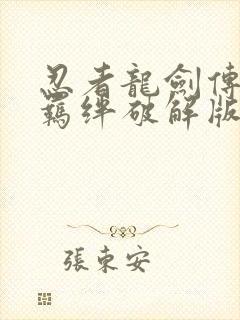 忍者龍劍傳
羈絆破解版
張東安